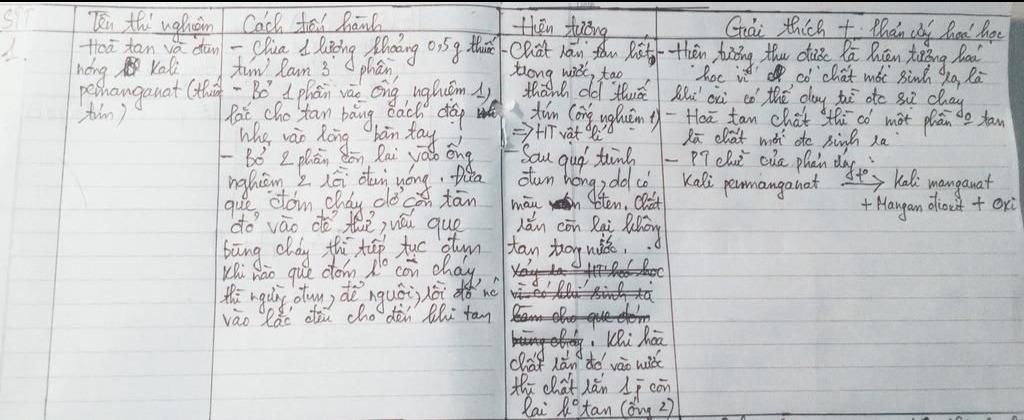 STT
Tên thí nghiệm
Cách tiến hành
Hiện tượng
Giải thích + Phản ứng hoá học
1.
Hoà tan và đun
nóng Kali
pemanganat (thuốc
tím)
- Chia 1 lượng khoảng 0,5g thuốc
tím làm 3 phần
- Bỏ 1 phần vào ống nghiệm 1,
lắc cho tan bằng cách đập
nhẹ vào lòng bàn tay
- Bỏ 2 phần còn lại vào ống
nghiệm 2 rồi đun nóng. Đưa
que đóm cháy dở còn tàn
đỏ vào để thử, nếu que
bùng cháy thì tiếp tục đun
Khi nào que đóm ko còn cháy
thì ngừng đun, để nguội, rồi đổ nc
vào lắc đều cho đến khi tan
- Chất rắn tan hết
trong nước, tạo
thành dd thuốc
tím (ống nghiệm 1)
=> HT vật lí
- Sau quá trình
đun nóng, dd có
màu đen. Chất
rắn còn lại không
tan trong nước.
Vậy là HT hoá học
vì có khí sinh ra
làm cho que đóm
bùng cháy. Khi hòa
chất rắn đó vào nước
thì chất rắn 1p còn
lại ko tan (ống 2)
- Hiện tượng thu được là hiện tượng hoá
học vì có chất mới sinh ra, là
khí oxi có thể duy trì đc sự cháy
- Hoà tan chất thì có một phần ko tan
là chất mới đc sinh ra
- PT chữ của phản ứng:
Kali penmanganat to→ Kali manganat
+ Mangan đioxit + Oxi